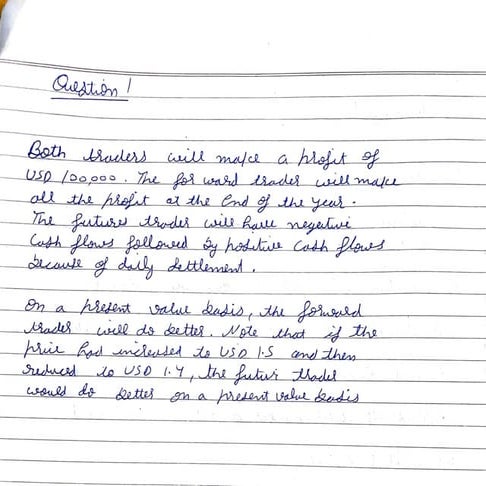 Question 1
Both traders will make a profit of
USD 100,000. The for ward trader will make
all the profit at the end of the year.
The future trader will have negative
Cash flows followed by positive cash flows
because of daily settlement.
On a present value basis, the forward
trader will do better. Note that if the
price had increased to USD 1.5 and then
reduced to USD 1.4, the futur trader
would do better on a present value basis